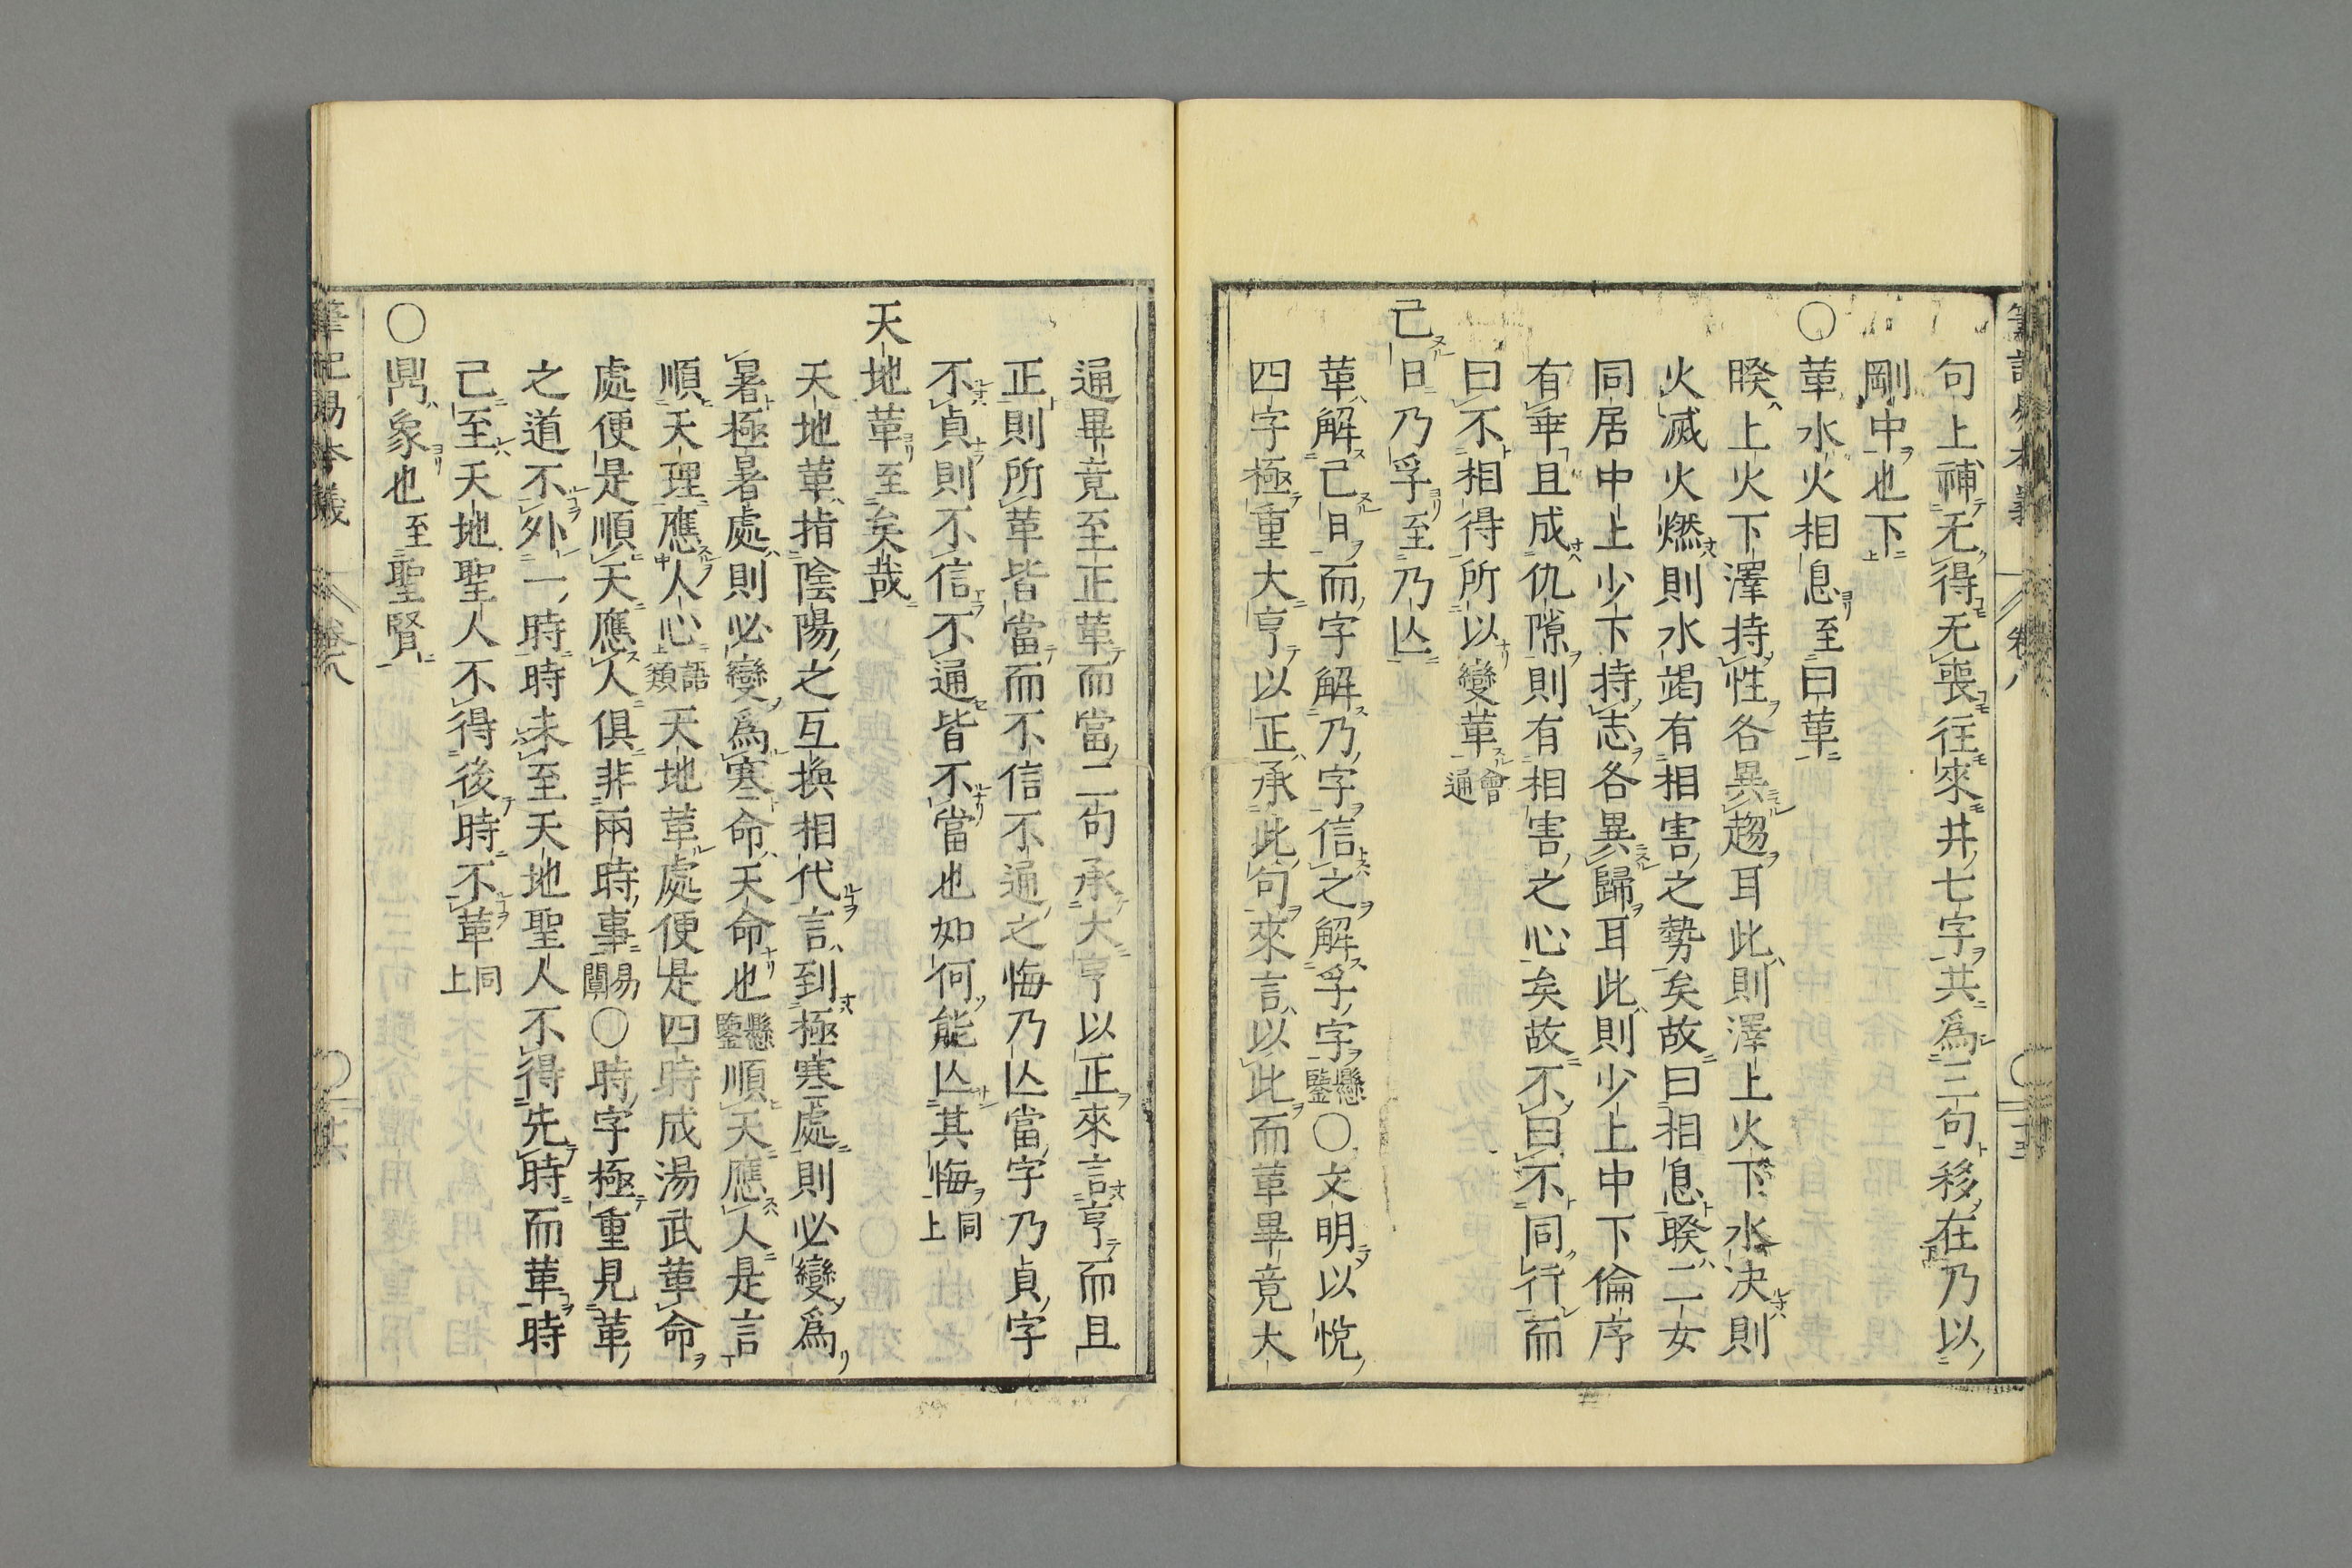 句上補无得无喪往來井七字共爲三句移在乃以
剛中也下
○革水火相息至曰革
睽上火下澤持性各異趨耳此則澤上火下水決則
火滅火燃則水竭有相害之勢矣故曰相息睽二女
同居中上少下持志各異歸耳此則少上中下倫序
有乖且成仇隙則有相害之心矣故不曰不同行而
曰不相得所以變革會通
己日乃孚至乃亾
革解己日而字解乃字信之解孚字懸鑒○文明以悅
四字極重大亨以正承此句來言以此而革畢竟大
通畢竟至正革而當二句承大亨以正來言亨而且
正則所革皆當而不信不通之悔乃亾當字乃貞字
不貞則不信不通皆不當也如何能亾其悔同上
天地革至矣哉
天地革指陰陽之互換相代言到極寒處則必變爲
暑極暑處則必變爲寒命天命也懸鑒順天應人是言
順天理應人心語類天地革處便是四時成湯武革命
處便是順天應人俱非兩時事易闡○時字極重見革
之道不外一時時未至天地聖人不得先時而革時
已至天地聖人不得後時不革同上
○鼎象也至聖賢